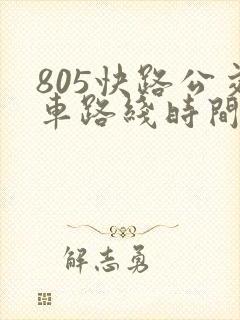 805快路公交
車路綫時間
解志勇